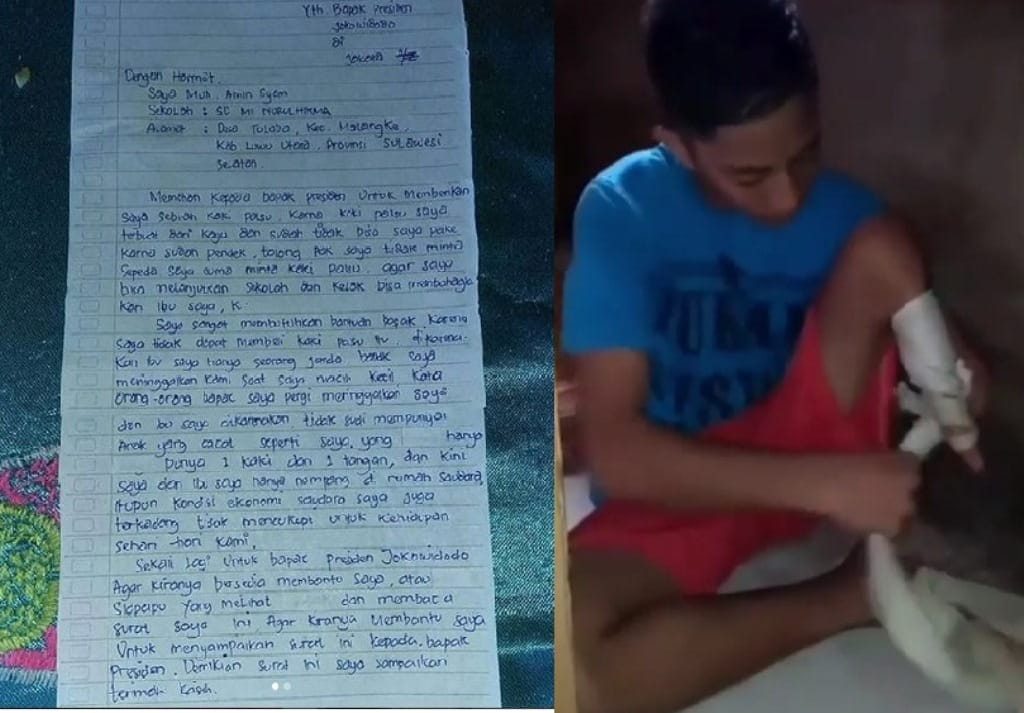 Yth Bapak Presiden
Jokowidodo
Di
Dengan Hormat.
Saya Muh. Amin Syam
Sekolah : SD MI NURUL HIKMA
Alamat : Desa Tolada, Kec. Malangke
Kab Luwu Utara, Provinsi Sulawesi
Selatan.
Memohon kepada bapak presiden Untuk Memberikan
Saya Sebuah kaki palsu. Karna kaki palsu saya
terbuat dari kayu dan sudah tidak bisa saya pake
karna sudah pendek, tolong pak saya tidak minta
Sepeda Saya cuma minta kaki palsu, agar saya
bisa melanjutkan Sekolah dan kelak bisa membahagia
kan ibu saya,
Saya sangat membutuhkan bantuan bapak karena
saya tidak dapat membeli kaki palsu itu, dikarena-
kan ibu saya hanya seorang janda bapak saya
meninggalkan kami Saat Saya masih kecil, kata
orang-orang bapak saya pergi meninggalkan saya
dan ibu saya dikarnakan tidak sudi mempunyai
Anak yang cacat seperti saya, yang hanya
punya 1 kaki dan 1 tangan, dan kini
saya dan ibu saya hanya nompang di rumah Saudara,
itupun kondisi ekonomi saudara saya juga
terkadang tidak mencukupi untuk kehidupan
sehari-hari kami.
Sekali lagi Untuk bapak presiden Jokowidodo
Agar kiranya bersedia membantu saya, atau
Siapapu yang melihat dan membaca
surat saya ini, Agar kiranya Membantu saya
Untuk menyampaikan Surat ini kepada bapak
presiden. Demikian surat ini saya sampaikan
terima kasih.